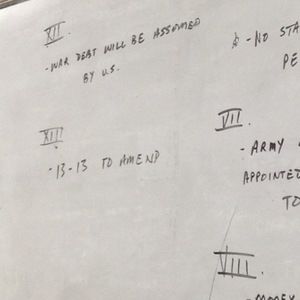 XII.
- WAR DEBT WILL BE ASSUMED
BY U.S.
XIII
- 13-13 TO AMEND
- NO STA
PE
VII.
- ARMY
APPOINTED
TO
VIII.
- MONEY